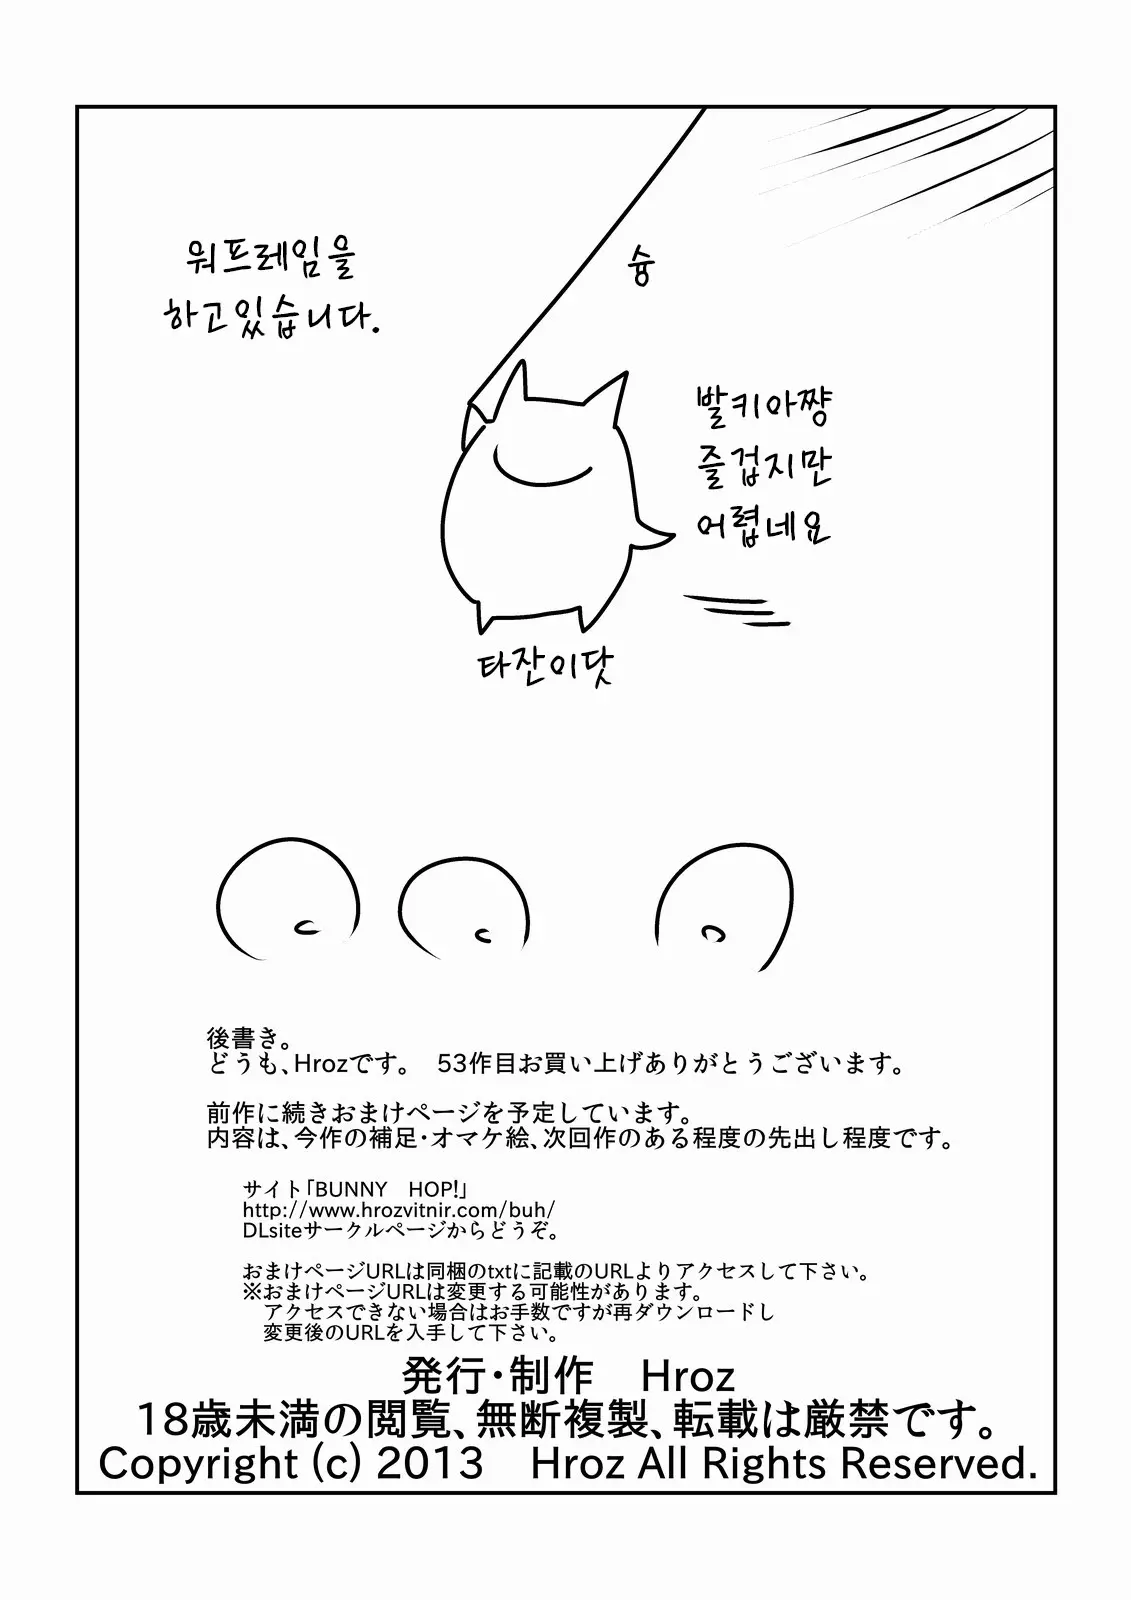 워프레임을
하고있습니다.
슝
발키아쨩
즐겁지만
어렵네요
타잔이닷
後書き。
どうも、Hrozです。　53作目お買い上げありがとうございます。
前作に続きおまけページを予定しています。
内容は、今作の補足・オマケ絵、次回作のある程度の先出し程度です。
サイト「BUNNY　HOP!」
http://www.hrozvitnir.com/buh/
DLsiteサークルページからどうぞ。
おまけページURLは同梱のtxtに記載のURLよりアクセスして下さい。
※おまけページURLは変更する可能性があります。
アクセスできない場合はお手数ですが再ダウンロードし
変更後のURLを入手して下さい。
発行・制作　Hroz
18歳未満の閲覧、無断複製、転載は厳禁です。
Copyright (c) 2013　Hroz All Rights Reserved.